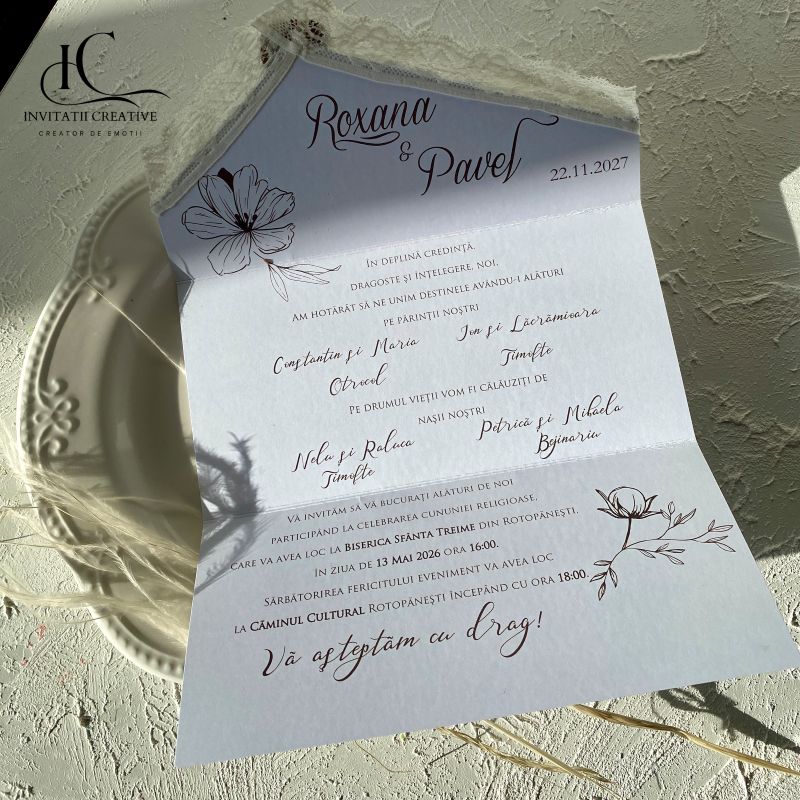 IC
INVITATII CREATIVE
CREATOR DE EMOTII
Roxana
&
Pavel
22.11.2027
În deplină credință,
dragoste și înțelegere, noi,
Am hotărât să ne unim destinele avându-i alături
pe părinții noștri
Constantin și Maria Ion și Lăcrămioara
Otrocol Timofte
Pe drumul vieții vom fi călăuziți de
nașii noștri
Nelu și Raluca Petrică și Mihaela
Timofte Bejinariu
Vă invităm să vă bucurați alături de noi
participând la celebrarea cununiei religioase,
care va avea loc la Biserica Sfânta Treime din Rotopănești,
în ziua de 13 Mai 2026 ora 16:00.
Sărbătorirea fericitului eveniment va avea loc
la Căminul Cultural Rotopănești începând cu ora 18:00.
Vă așteptăm cu drag!